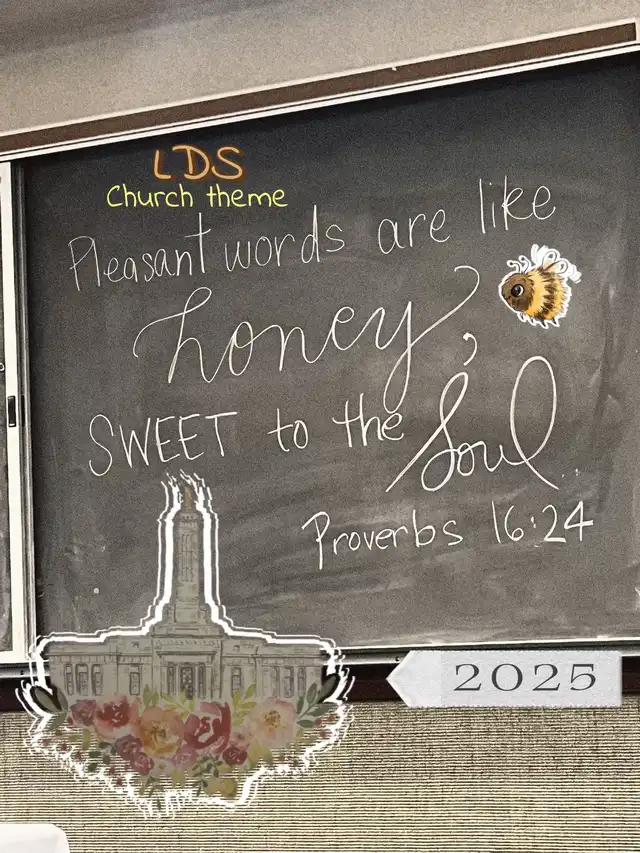 LDS
Church theme
Pleasant words are like
honey,
SWEET to the Soul..
Proverbs 16:24
2025